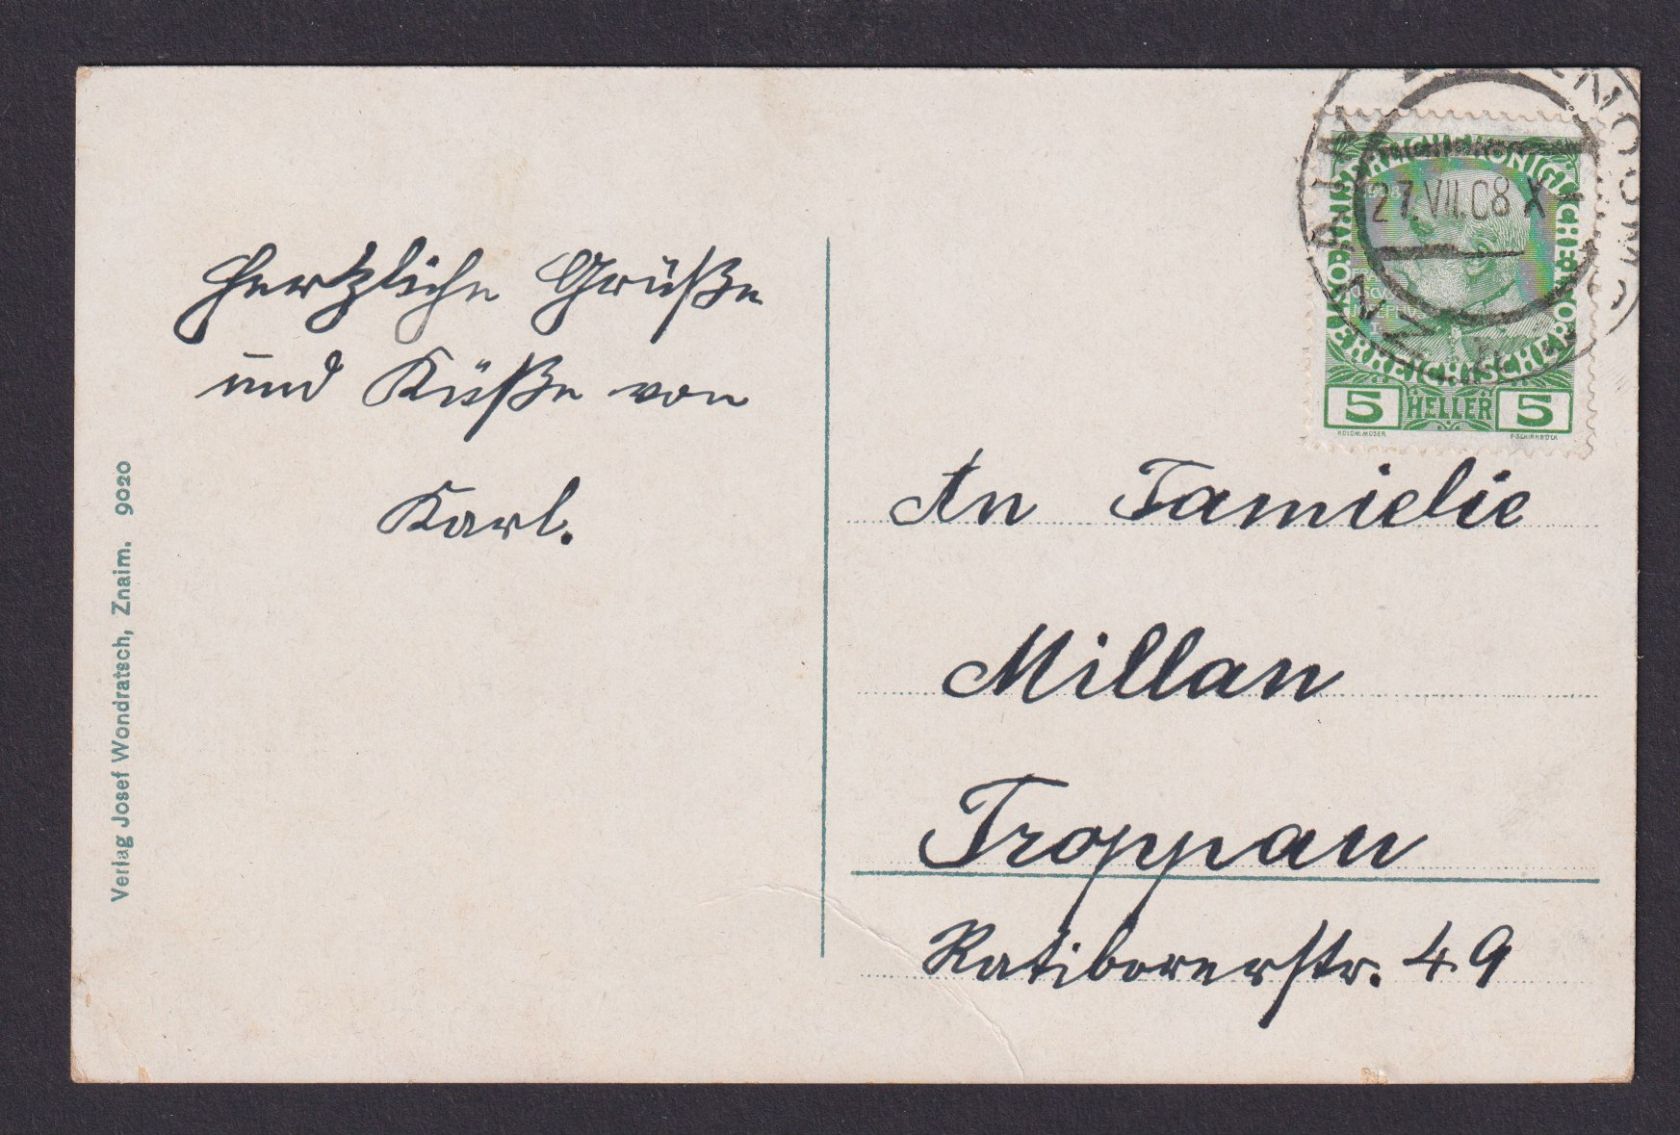 Herzliche Grüße
und Küße von
Karl.
An Familie
Millan
Troppau
Ratiborerstr. 49
Verlag Josef Wondratsch, Znaim. 9020
27.VII.08 X
ZNAIM ZNOJMO
5 HELLER 5